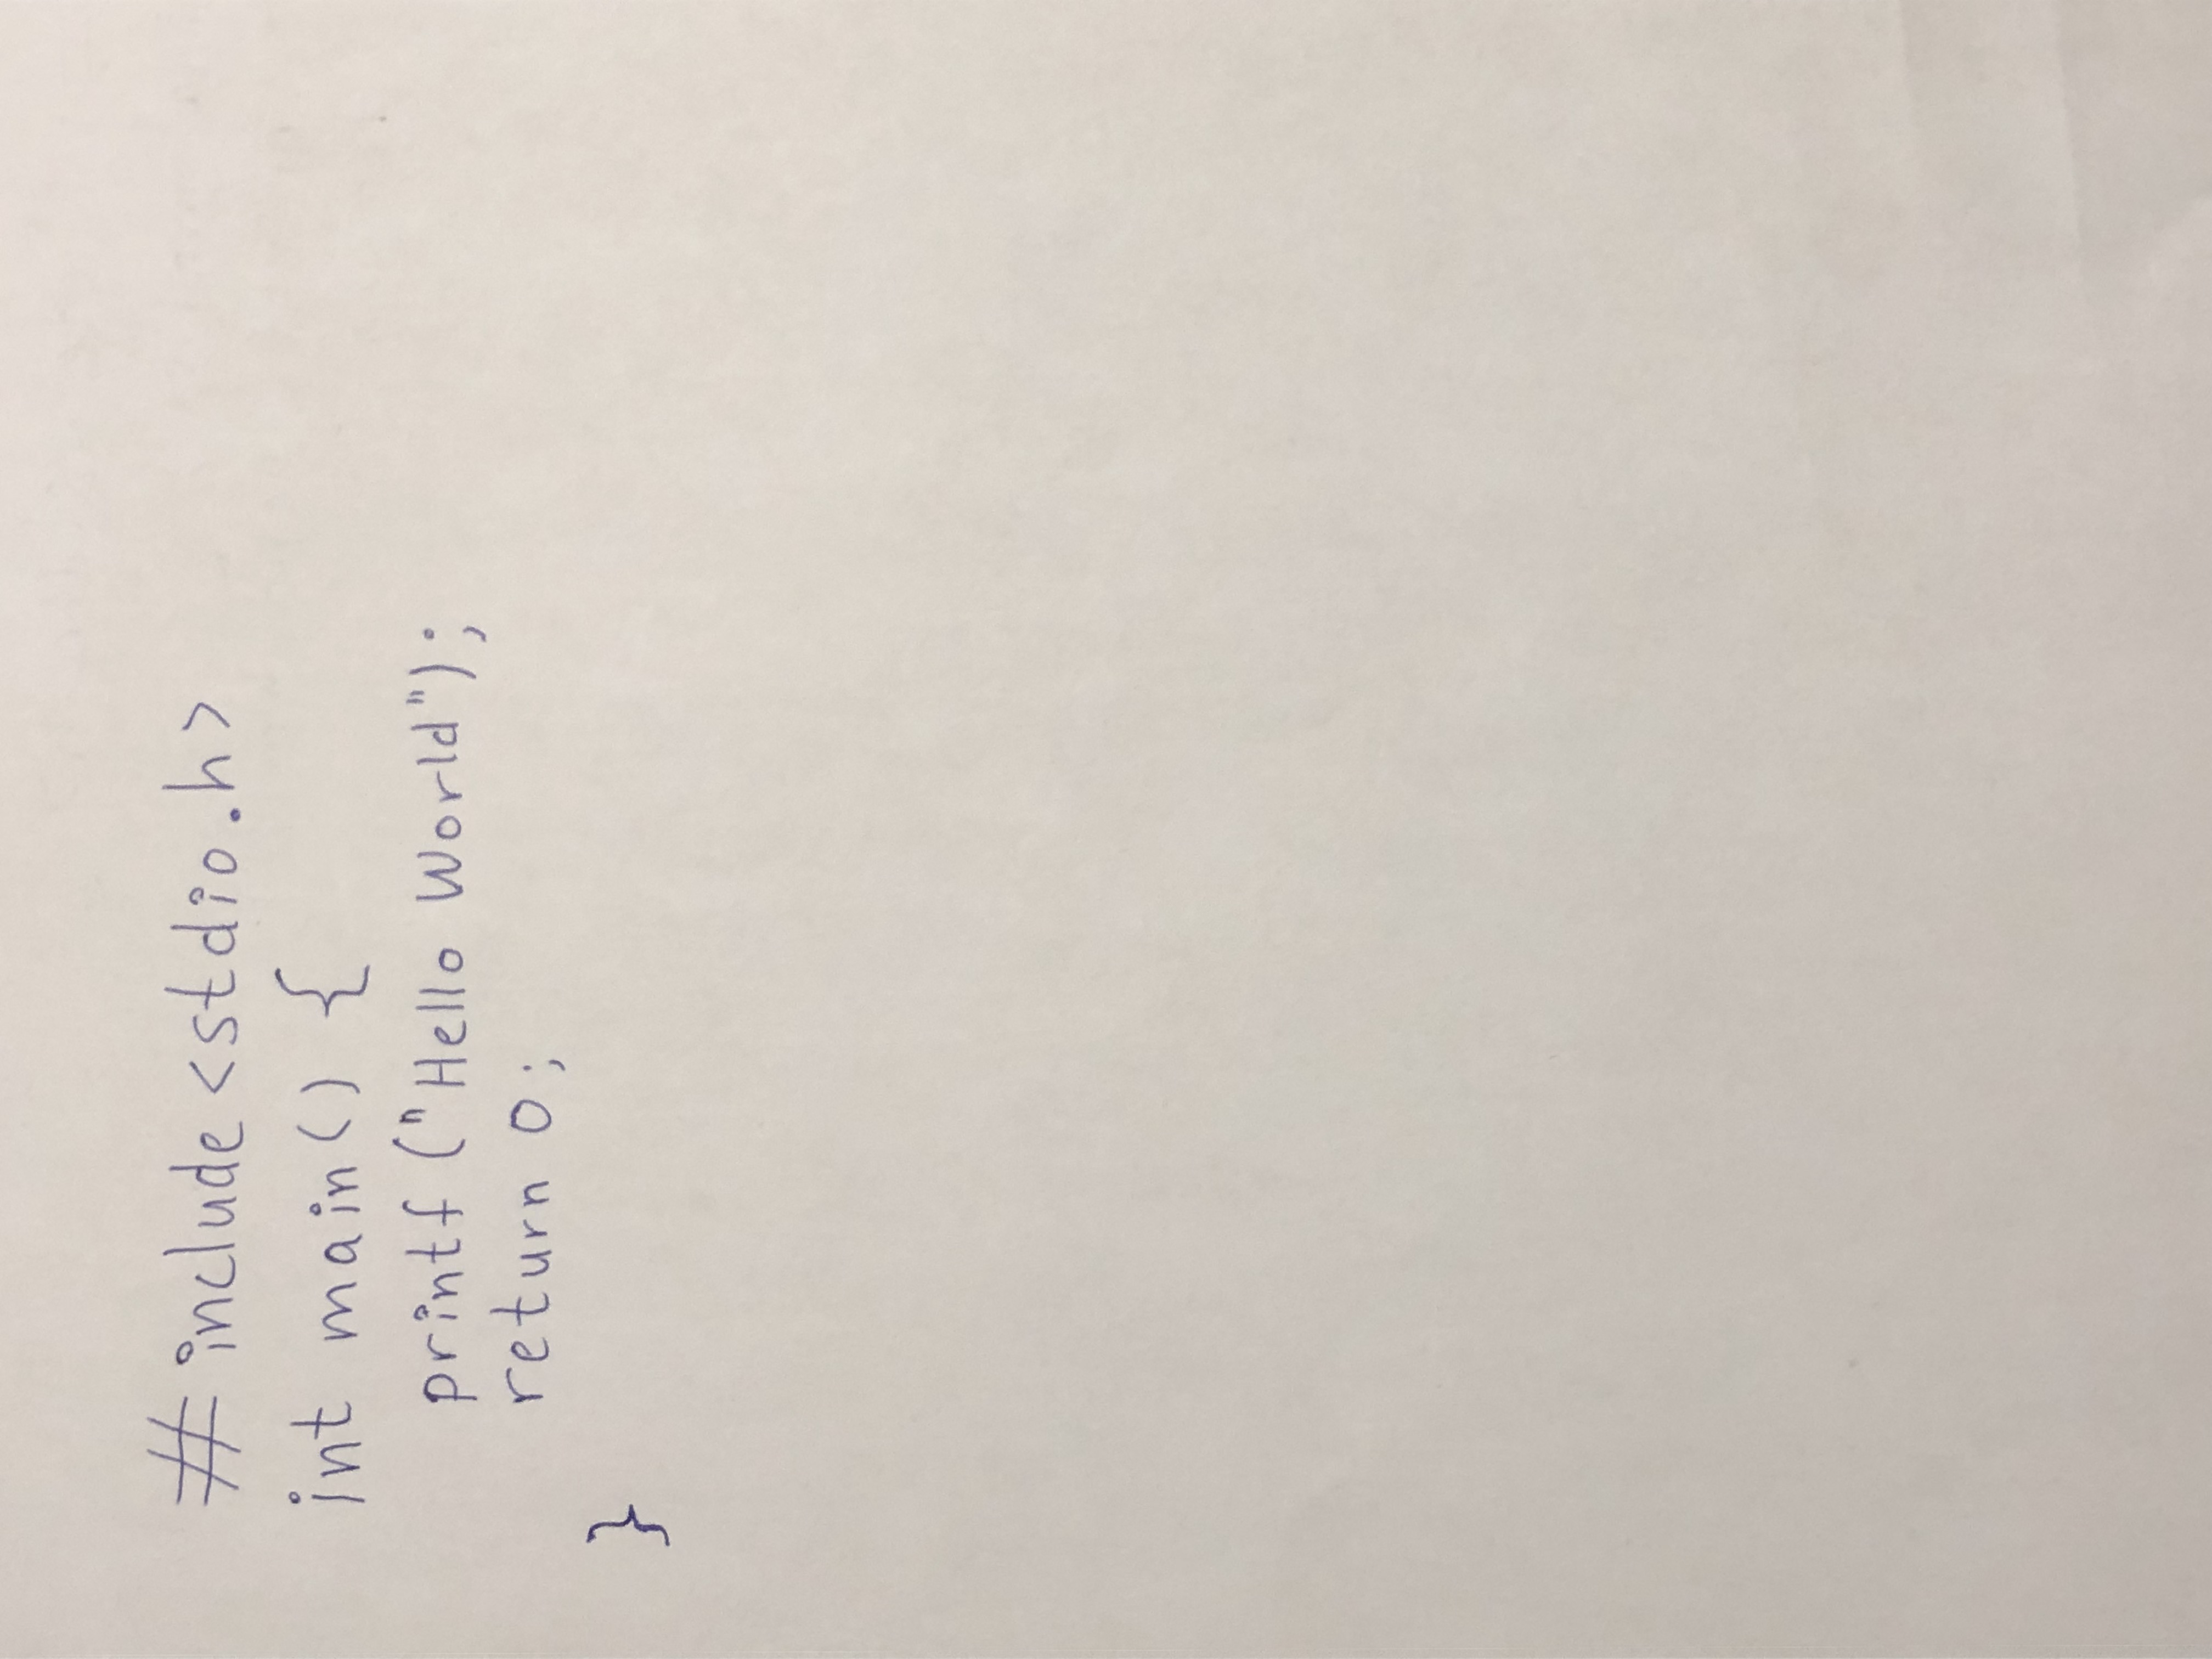 # include <stdio.h>
int main() {
printf ("Hello World");
return 0;
}